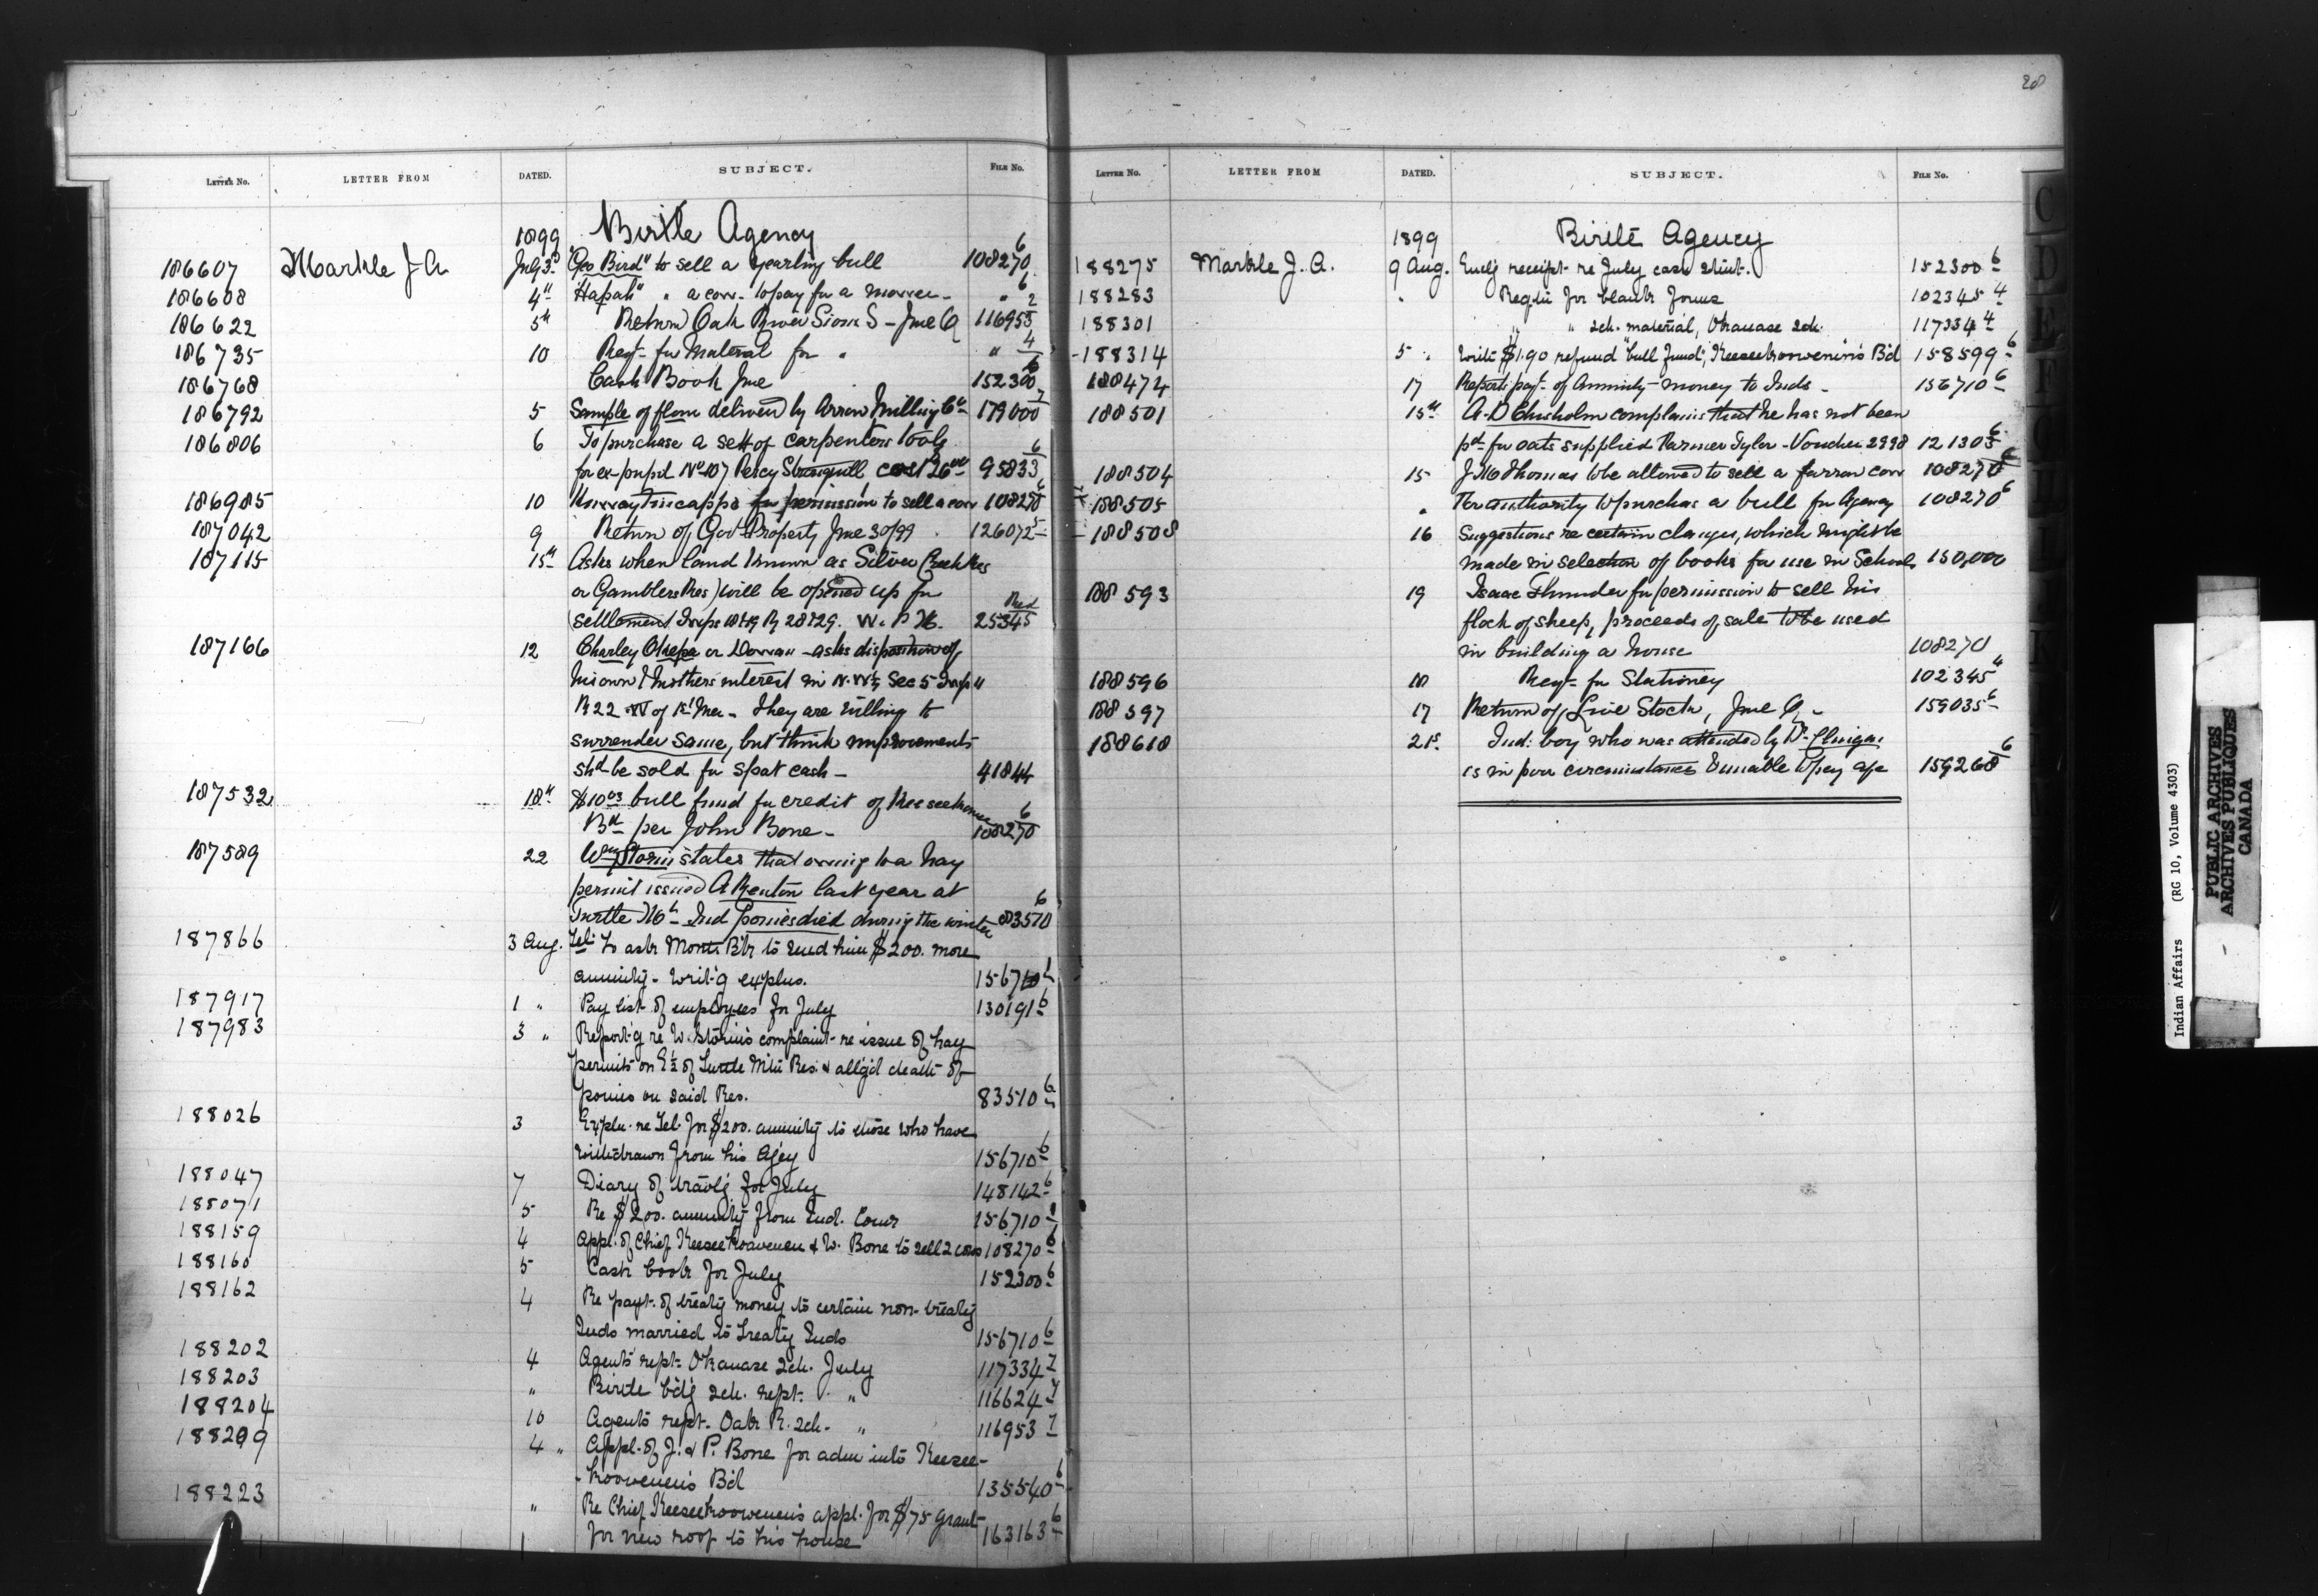 20
LETTER No. LETTER FROM DATED. SUBJECT. FILE No.
1899 Birtle Agency
186607 Markle J A July 3d "Geo Bird" to sell a yearling bull 108270 6
186608 4th "Hapah" " a cow - to pay for a mower - " 6
186622 5th Return Oak River Sioux S - June Q 116953 2
186735 10 Reqn for Material for " " 4
186768 Cash Book June 152300 6
186792 5 Sample of flour delivered by Arrow Milling Co 179000 7
186806 6 To purchase a sett of carpenters tools
for ex-pupil No 107 Percy cost $26.00 95833 6
186985 10 for permission to sell a cow 108270 6
187042 9 Return of Govt Property June 30/99 126072 5
187115 15th Asks when land known as Silver Creek Res
or Gamblers Res) will be opened up for
settlement Twps 18 & 19 R 28 & 29. W. P M. Red 25345
187166 12 Charley or Dorran - asks disposition of
his own & mothers interest in N.W¼ Sec 5 Twp 11
R 22 W of 1st Mer - They are willing to
surrender same, but think improvements
shd be sold for spot cash - 41844
187532 18th $10.03 bull fund for credit of Keeseekoowe
Bd per John Bone - 108270 6
187589 22 Wm Storin states that owing to a hay
permit issued A Renton last year at
Turtle Mt Ind ponies died during the winter 83510 6
187866 3 Aug. Tel: to ask Montr. Bk to send him $200. more
annuity - writ'g explns. 156710 6
187917 1 " Pay list of employees for July 130191 6
187983 3 " Report'g re W. Storin's complaint re issue of hay
permits on E½ of Turtle Mtn Res. & alleg'd death of
ponies on said Res. 83510 6
188026 3 Expln. re Tel. for $200. annuity to those who have
withdrawn from his Agcy 156710 6
188047 7 Diary of travl'g for July 148142 6
188071 5 Re $200. annuity from Ind. Comr 156710
188159 4 Appl. of Chief Keeseekoowenen & W. Bone to sell 2 cows 108270 6
188160 5 Cash book for July 152300 6
188162 4 Re payt. of treaty money to certain non-treaty
Inds married to treaty Inds 156710 6
188202 4 Agent's rept. Okanase Sch. July 117334 7
188203 " Birtle b'd'g Sch. rept. " 116624 7
188204 10 Agents rept. Oak R. Sch. " 116953 7
188209 4 " Appl. of J. & P. Bone for adm into Keesee-
-koowenen's Bd 135540 6
188223 " Re Chief Keeseekoowenen's appl. for $75 grant
for new roof to his house 163163 6
LETTER No. LETTER FROM DATED. SUBJECT. FILE No.
1899 Birtle Agency
188275 Markle J. A. 9 Aug. Encl'g receipt re July cash stmt. 152300 6
188283 " Reqtn for blank forms 102345 4
188301 " " Sch. material, Okanase Sch. 117334 4
188314 5 " $1.90 refund "bull fund", Keeseekoowenin's Bd 158599 6
188474 17 Reports payt. of Annuity money to Inds - 156710 6
188501 15th A. D Chisholm complains that he has not been
pd for oats supplied Farmer Tyler - Voucher 2998 121303 6
188504 15 J. McThomas to be allowed to sell a farrow cow 108270 6
188505 " For authority to purchase a bull for Agency 108270 6
188508 16 Suggestions re certain changes, which might be
made in selection of books for use in Schools 150,000
188593 19 Isaac Thunder for permission to sell his
flock of sheep, proceeds of sale to be used
in building a house 108270
188596 18 Reqn for Stationery 102345 4
188597 17 Return of Live Stock, June Q - 159035 6
188618 21st Ind: boy who was attended by Dr. Clingan
is in poor circumstances & unable to pay a/c 159268 6
C
D
E
F
G
Indian Affairs (RG 10, Volume 4303)
PUBLIC ARCHIVES
ARCHIVES PUBLIQUES
CANADA